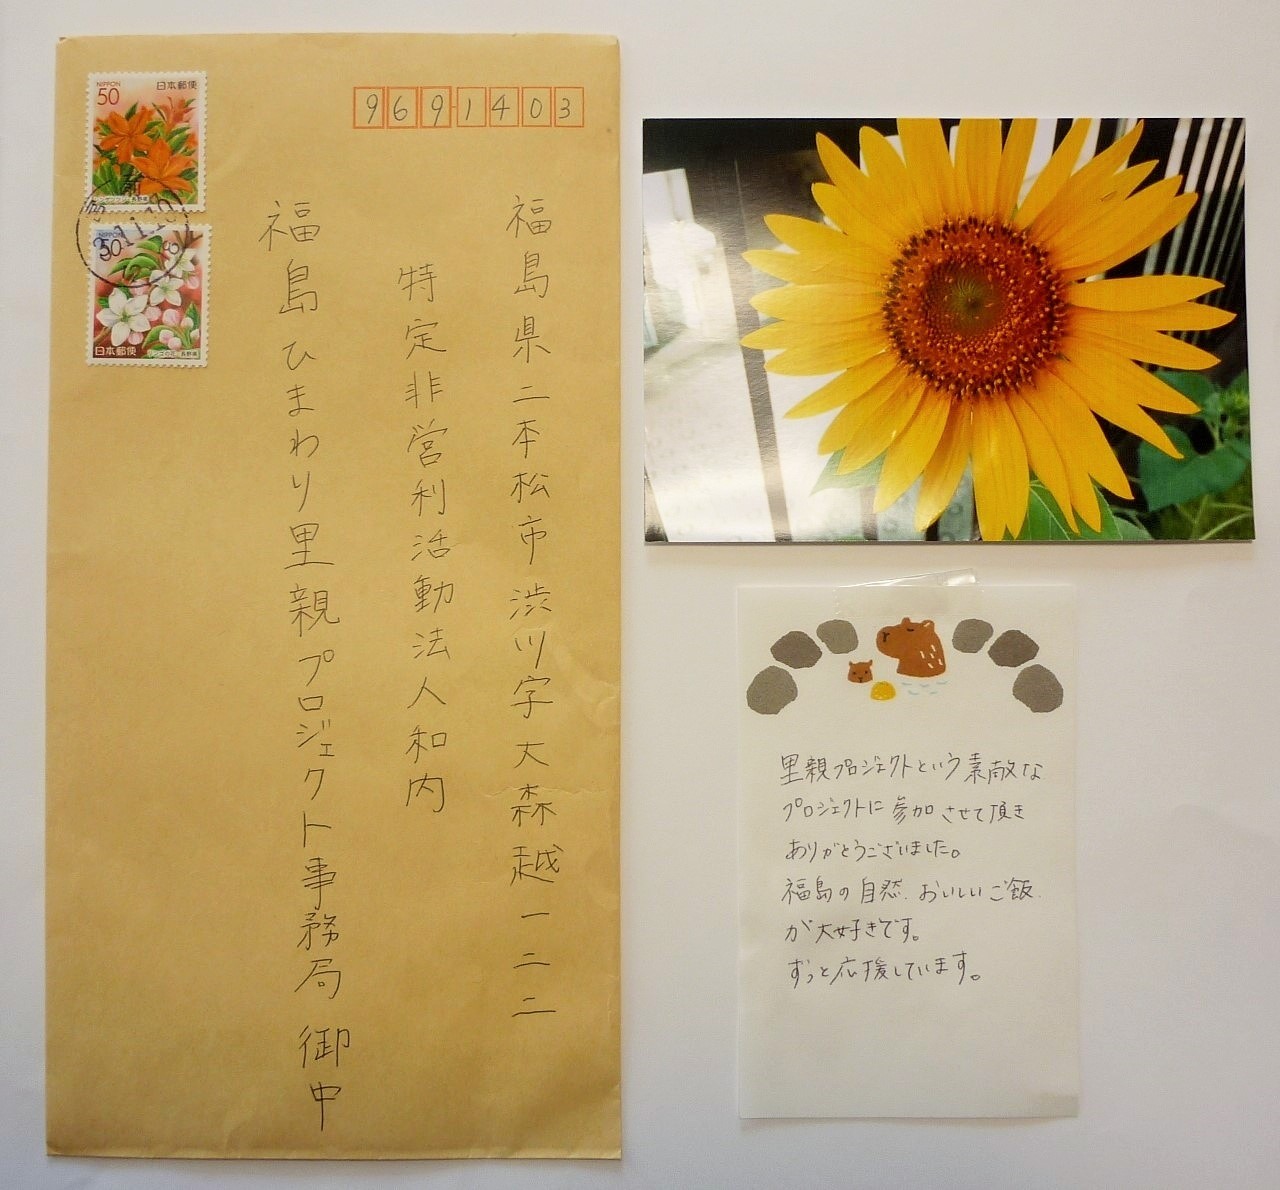 NIPPON
50
日本郵便
NIPPON
50
日本郵便
9691403
福島県二本松市渋川字大森越一二二
特定非営利活動法人和内
福島ひまわり里親プロジェクト事務局 御中
里親プロジェクトという素敵な
プロジェクトに参加させて頂き
ありがとうございました。
福島の自然、おいしいご飯
が大好きです。
ずっと応援しています。